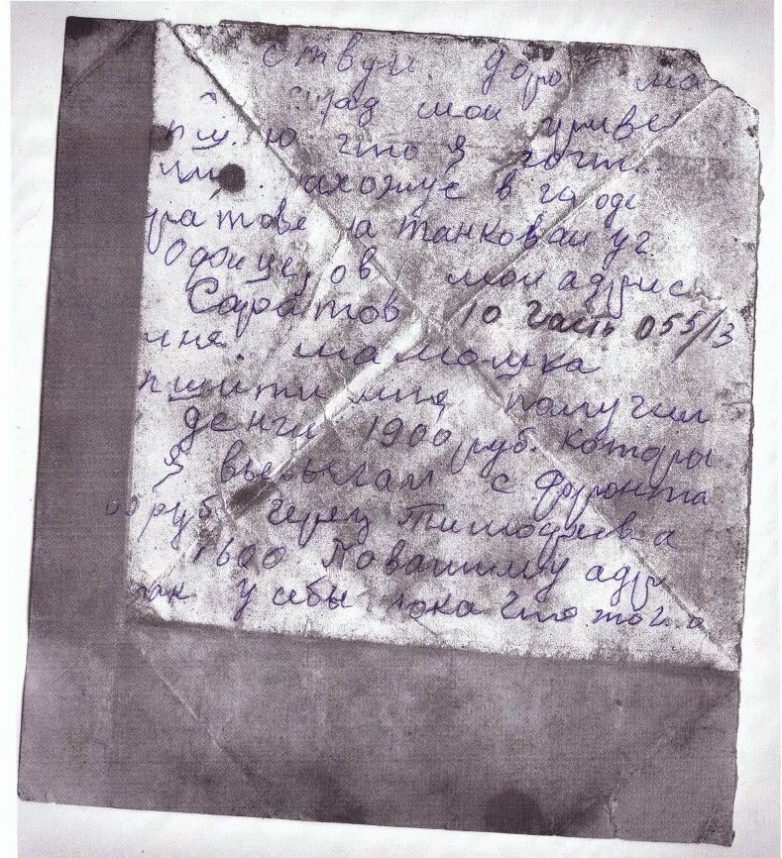 ствуи доро ма
рад мои приве
пиш ю что я
ахожус в го оде
ратове на танковаи уч
Офицеров мои адрис
Саратов 10 часть 055/13
мня. мамошка
пишити мне получил
денги 1900 руб. которы
я высылал с фронта
00 руб. через Тимофяев-а
1600 Повашиму адри
так у себы пока что